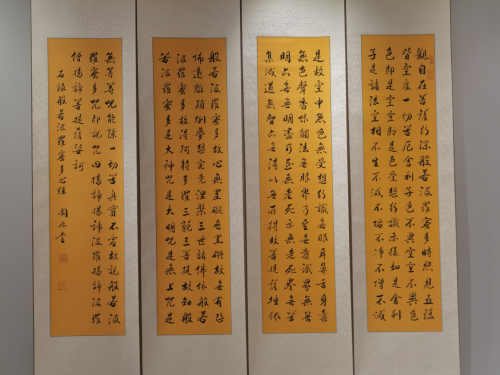 觀自在菩薩行深般若波羅蜜多時照見五蘊
皆空度一切苦厄舍利子色不異空空不異色
色即是空空即是色受想行識亦復如是舍利
子是諸法空相不生不滅不垢不淨不增不減
是故空中無色無受想行識無眼耳鼻舌身意
無色聲香味觸法無眼界乃至無意識界無無
明亦無無明盡乃至無老死亦無老死盡無苦
集滅道無智亦無得以無所得故菩提薩埵依
般若波羅蜜多故心無罣礙無罣礙故無有恐
怖遠離顛倒夢想究竟涅槃三世諸佛依般若
波羅蜜多故得阿耨多羅三藐三菩提故知般
若波羅蜜多是大神咒是大明咒是無上咒是
無等等咒能除一切苦真實不虛故說般若波
羅蜜多咒即說咒曰揭諦揭諦波羅揭諦波羅
僧揭諦菩提薩婆訶
右錄般若波羅蜜多心經